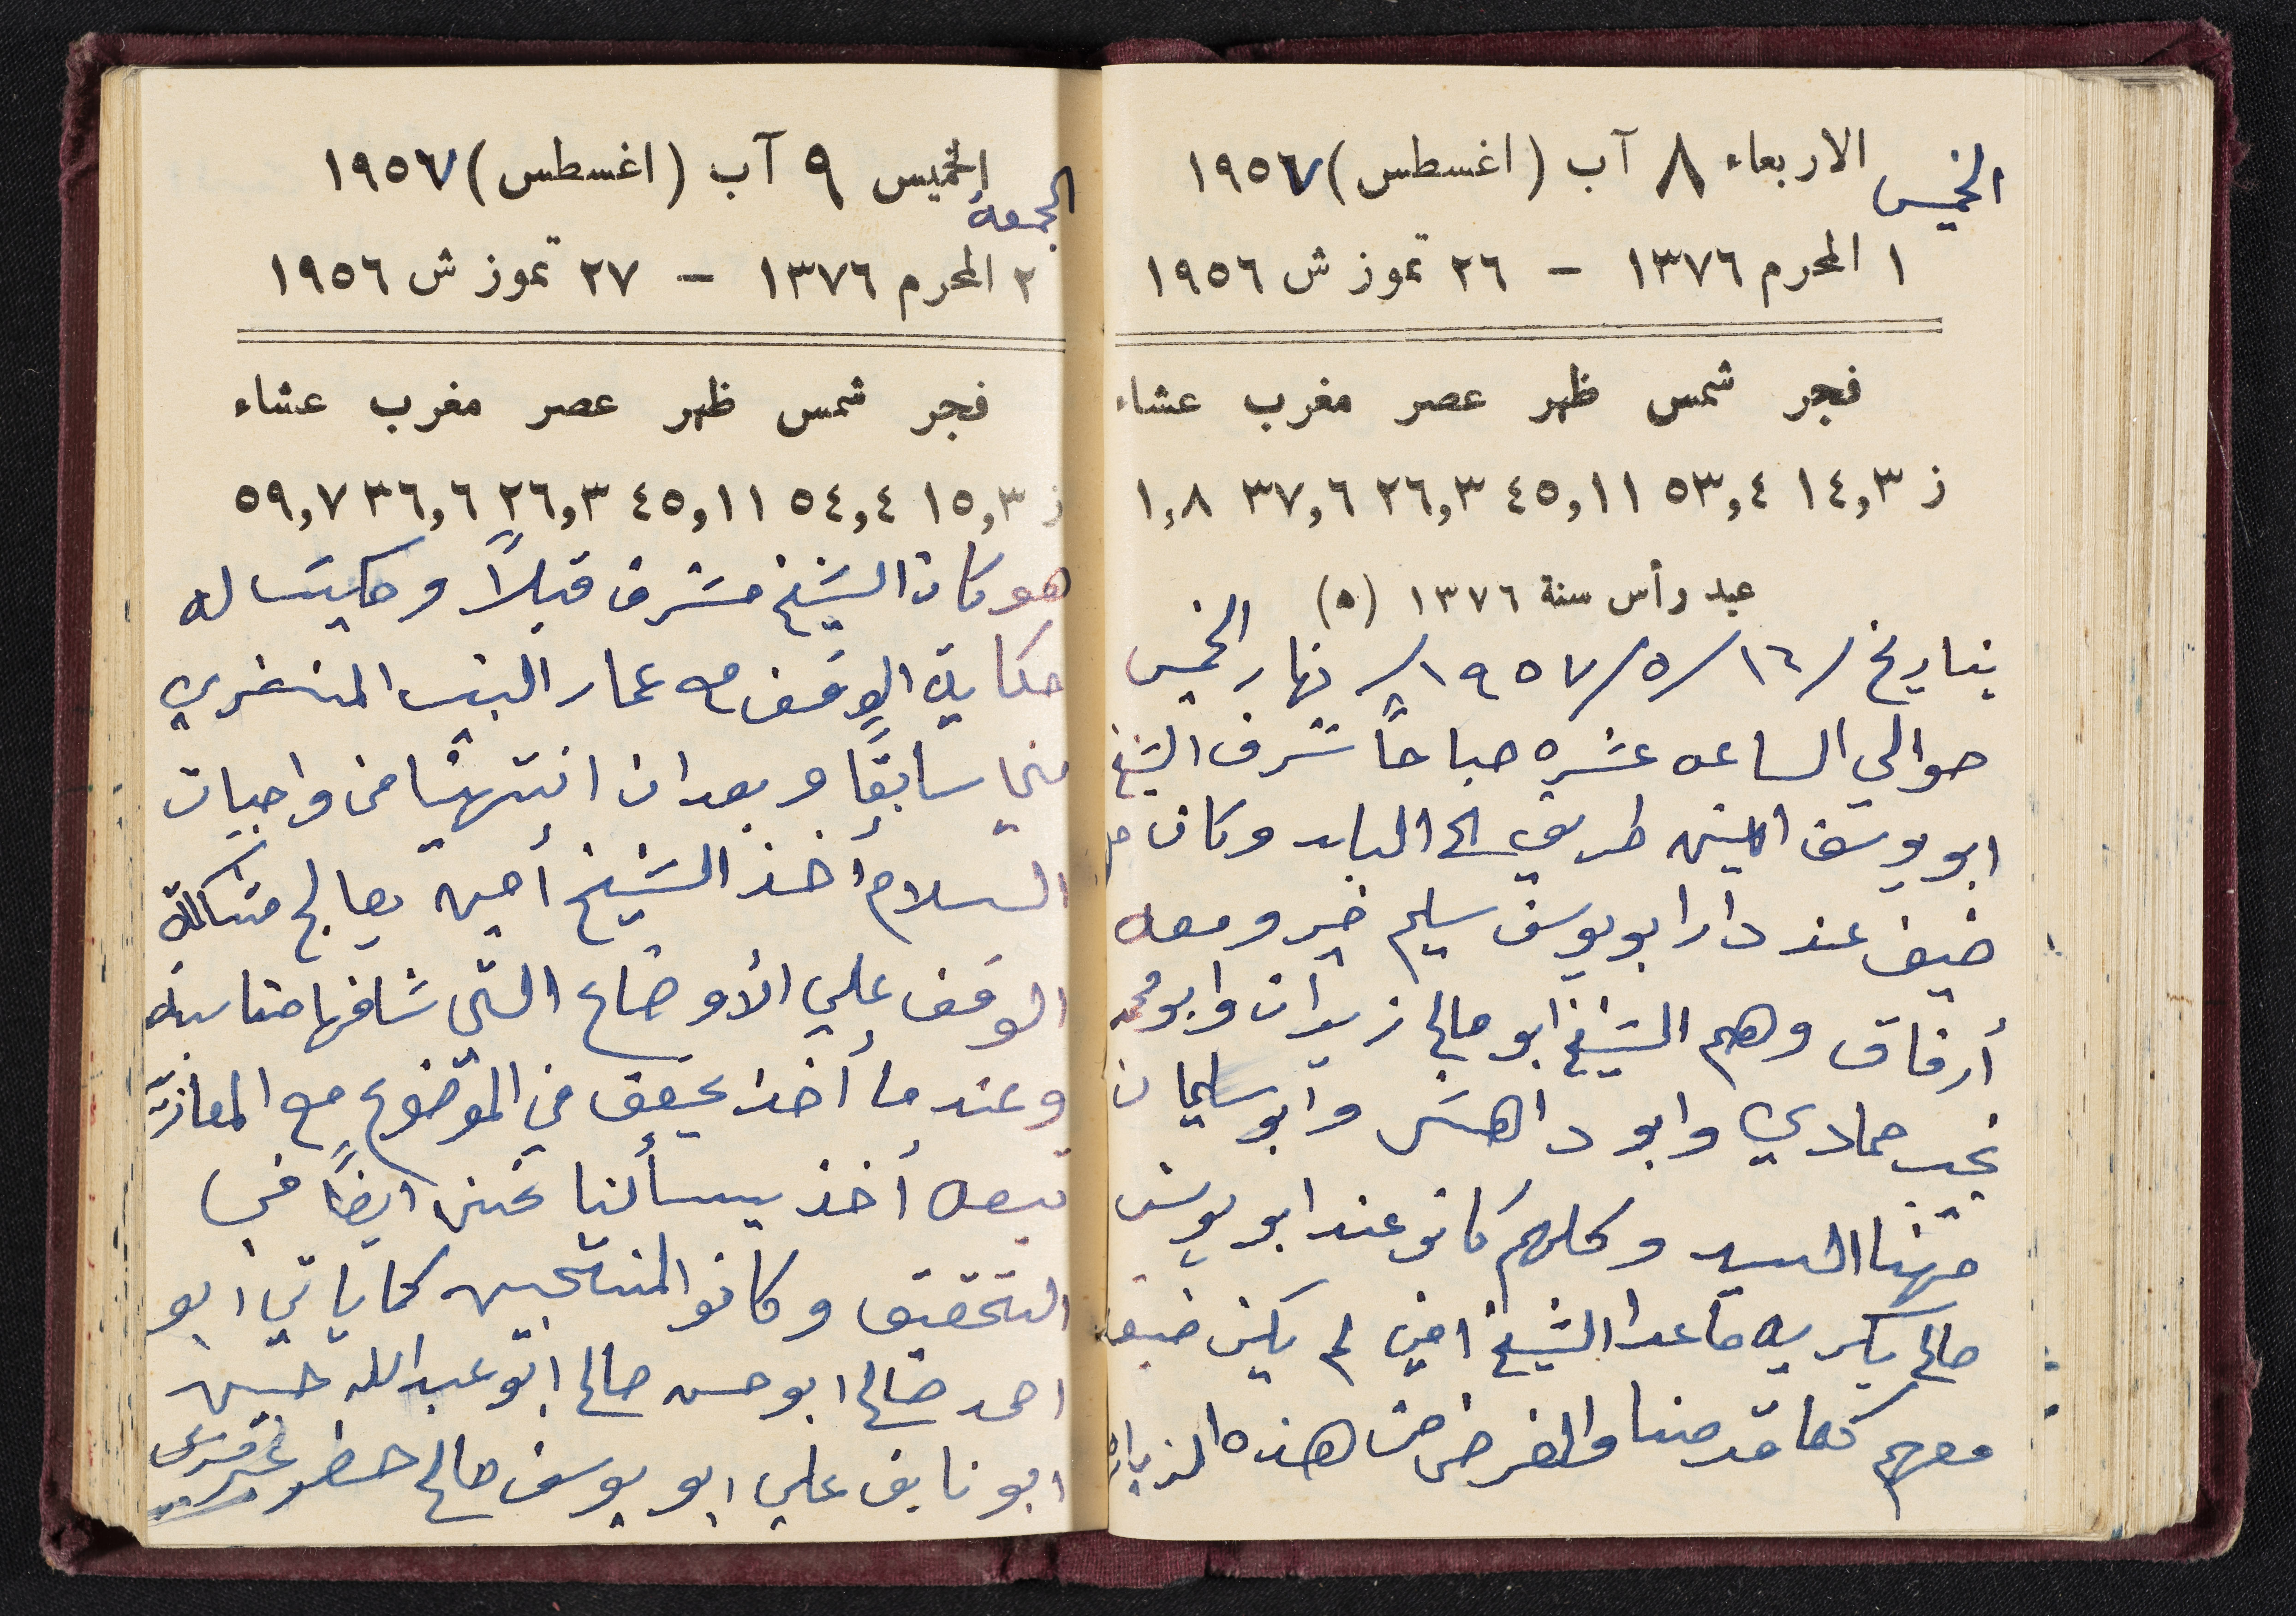 الخميس الاربعاء ٨ آب (اغسطس) ١٩٥٧
١ المحرم ١٣٧٦ – ٢٦ تموز ش ١٩٥٦
فجر شمس ظهر عصر مغرب عشاء
ز ١٤,٣ ٥٣,٤ ٤٥,١١ ٢٦,٣ ٣٧,٦ ١,٨
عيد رأس سنة ١٣٧٦ (٥)
بتاريخ /١٦/٥/١٩٥٧/ نهار الخميس
حوالي الساعه عشره صباحاً شرف الشيخ
ابو يوسف امين طريف الى البلد وكان
ضيف عند دار ابو يوسف سليم خير ومعه
أرفاق وهم الشيخ ابو صالح زيدان وابو محمد
نجيب حمادي وابو داهش وابو سليمان
مهنا السيد وكلهم كانو عند ابو يوسف
صالح بكريه ماعدا الشيخ امين لم يكن ضيف
معهم كما قدمنا والغرض من هذه الزياره
الجمعة الخميس ٩ آب (اغسطس) ١٩٥٧
٢ المحرم ١٣٧٦ – ٢٧ تموز ش ١٩٥٦
فجر شمس ظهر عصر مغرب عشاء
ز ١٥,٣ ٥٤,٤ ٤٥,١١ ٢٦,٣ ٣٦,٦ ٥٩,٧
هو كان الشيخ مشرف قبلاً وحكيت له
حكاية الوقف مع عمار البيت
مني سابقاً وبعد ان انتهينا من واجبات
السلام أخذ الشيخ أمين يعالج مشكلة
الوقف علي الأوضاع التي شافها مناسبه
وعندما أخذ يحقق في الموضوع مع
تبعه أخذ يسألنا نحن ايضاً في
التحقيق وكانو المنتخبين كما ياتي ابو
احمد صالح ابو حسن صالح ابو عبدالله حسين
ابو نايف علي ابو يوسف صالح خطر